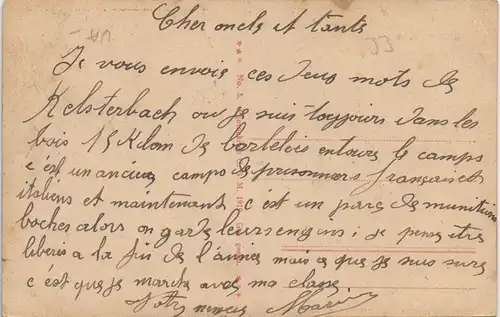 Cher oncle et tante
Je vous envoie ces deus mots de
Kelsterbach ou je suis toujours dans les
bois 15 Kilom de barbelées entoure le camps
c'est un ancien camps de prisonniers français et
italiens et maintenant c'est un parc de munitions
boches alors on garde leurs engins; je pense être
liberé a la fin de l'année mais ce que je suis sure
c'est que je marche avec ma classe.
Votre neveu